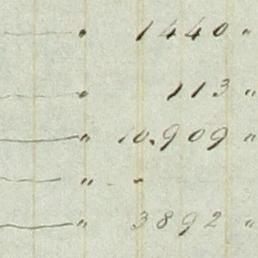 " 1440 "
" 113 "
" 10.909 "
" -
" 3892 "